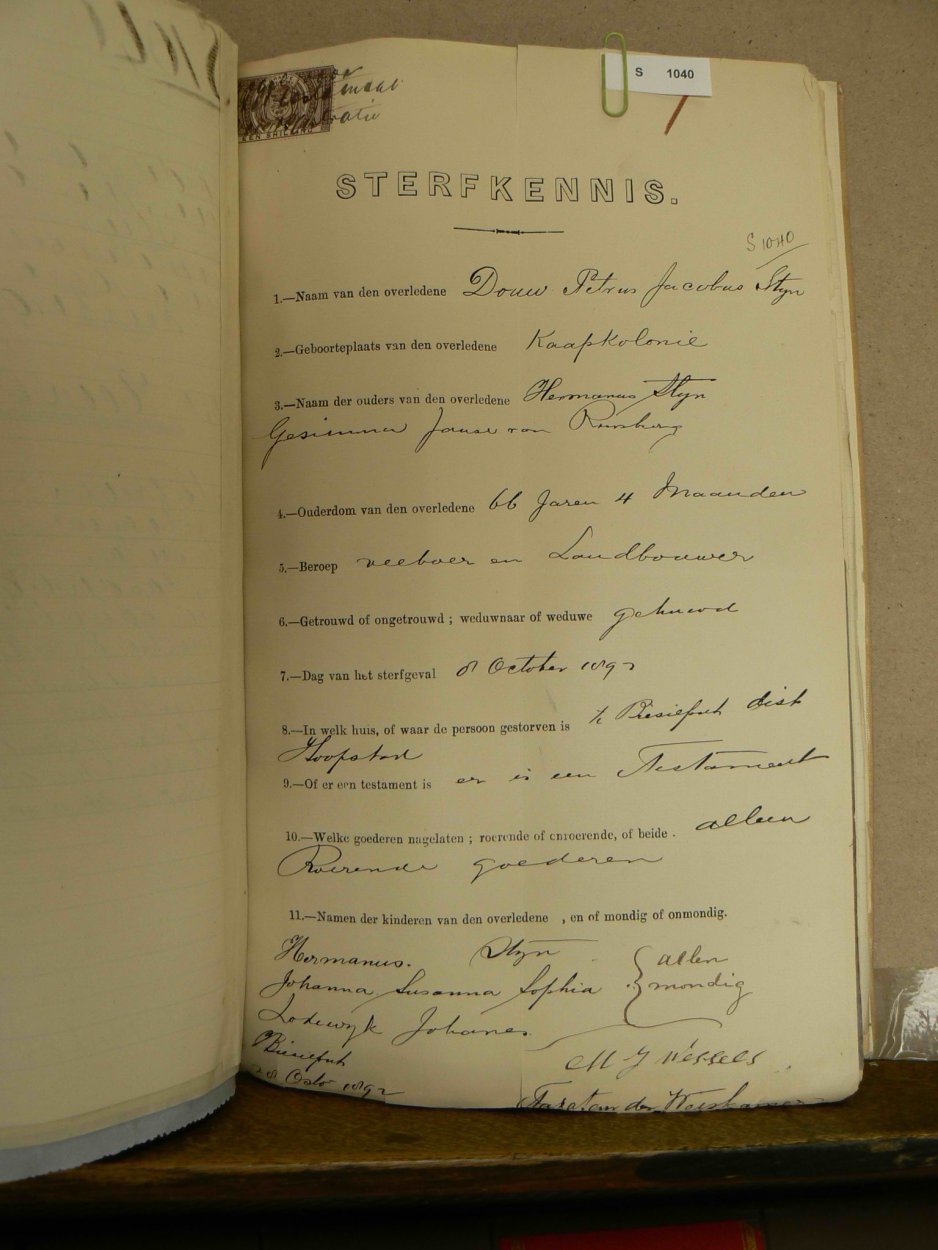 S 1040
EEN SHILLING
STERFKENNIS.
S 1040
1.—Naam van den overledene Douw Petrus Jacobus Styn
2.—Geboorteplaats van den overledene Kaapkolonie
3.—Naam der ouders van den overledene Hermanus Styn
Gesimmer Janse van Rensberg
4.—Ouderdom van den overledene 66 Jaren 4 Maanden
5.—Beroep veeboer en Landbouwer
6.—Getrouwd of ongetrouwd ; weduwnaar of weduwe gehuwd
7.—Dag van het sterfgeval 8 October 1892
8.—In welk huis, of waar de persoon gestorven is dist
Hoopstad
9.—Of er een testament is er is een Testament
10.—Welke goederen nagelaten ; roerende of onroerende, of beide . alleen
Roerende goederen
11.—Namen der kinderen van den overledene , en of mondig of onmondig.
Hermanus. Styn allen
Johanna Susanna Sophia mondig
Lodewyk Johanes
M J Wessels
Octo 1892 der Weeskamer